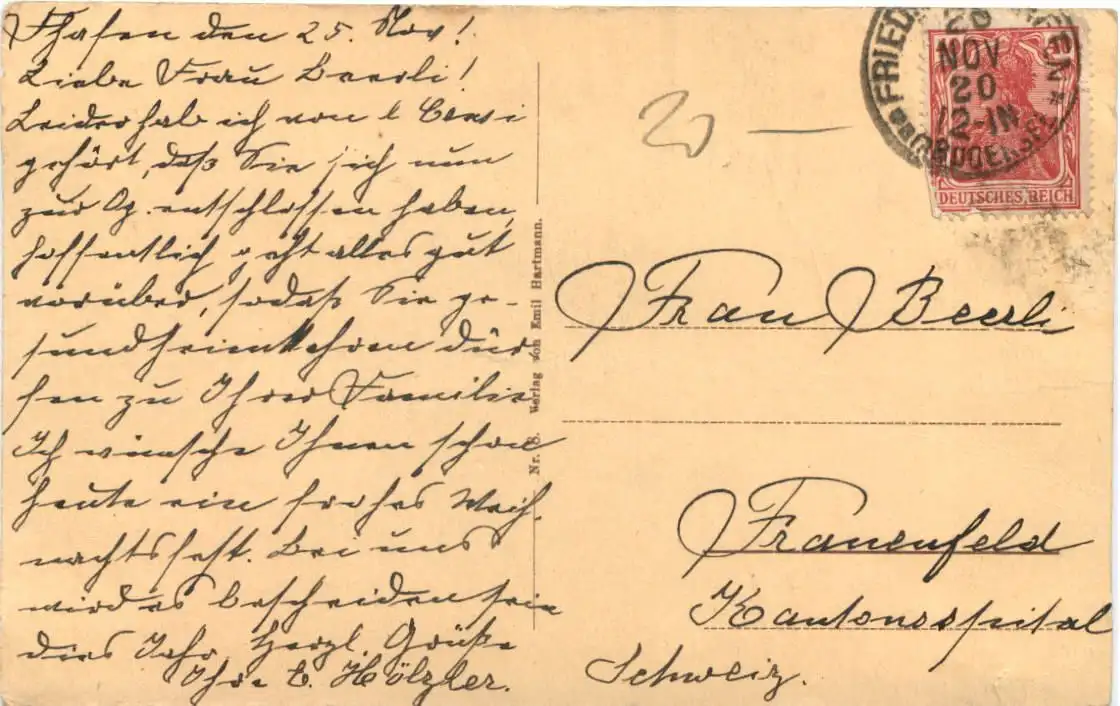 Fhafen den 25. Nov!
Liebe Frau Beerli!
Leider hab ich von l
gehört, daß Sie sich nun
zur Op. entschlossen haben,
hoffentlich geht alles gut
vorüber, sodaß Sie ge-
sund heimkehren dür
fen zu Ihrer Familie
Ich wünsche Ihnen schon
heute ein frohes Weih.
nachtsfest. Bei uns
wird es bescheiden sein
dies Jahr. Herzl. Grüße
Ihre E. Hölzler.
Nr. 8. Verlag von Emil Hartmann.
20 —
NOV
20
12-1N
DEUTSCHES REICH
Frau Beerli
Frauenfeld
Kantonsspital
Schweiz.